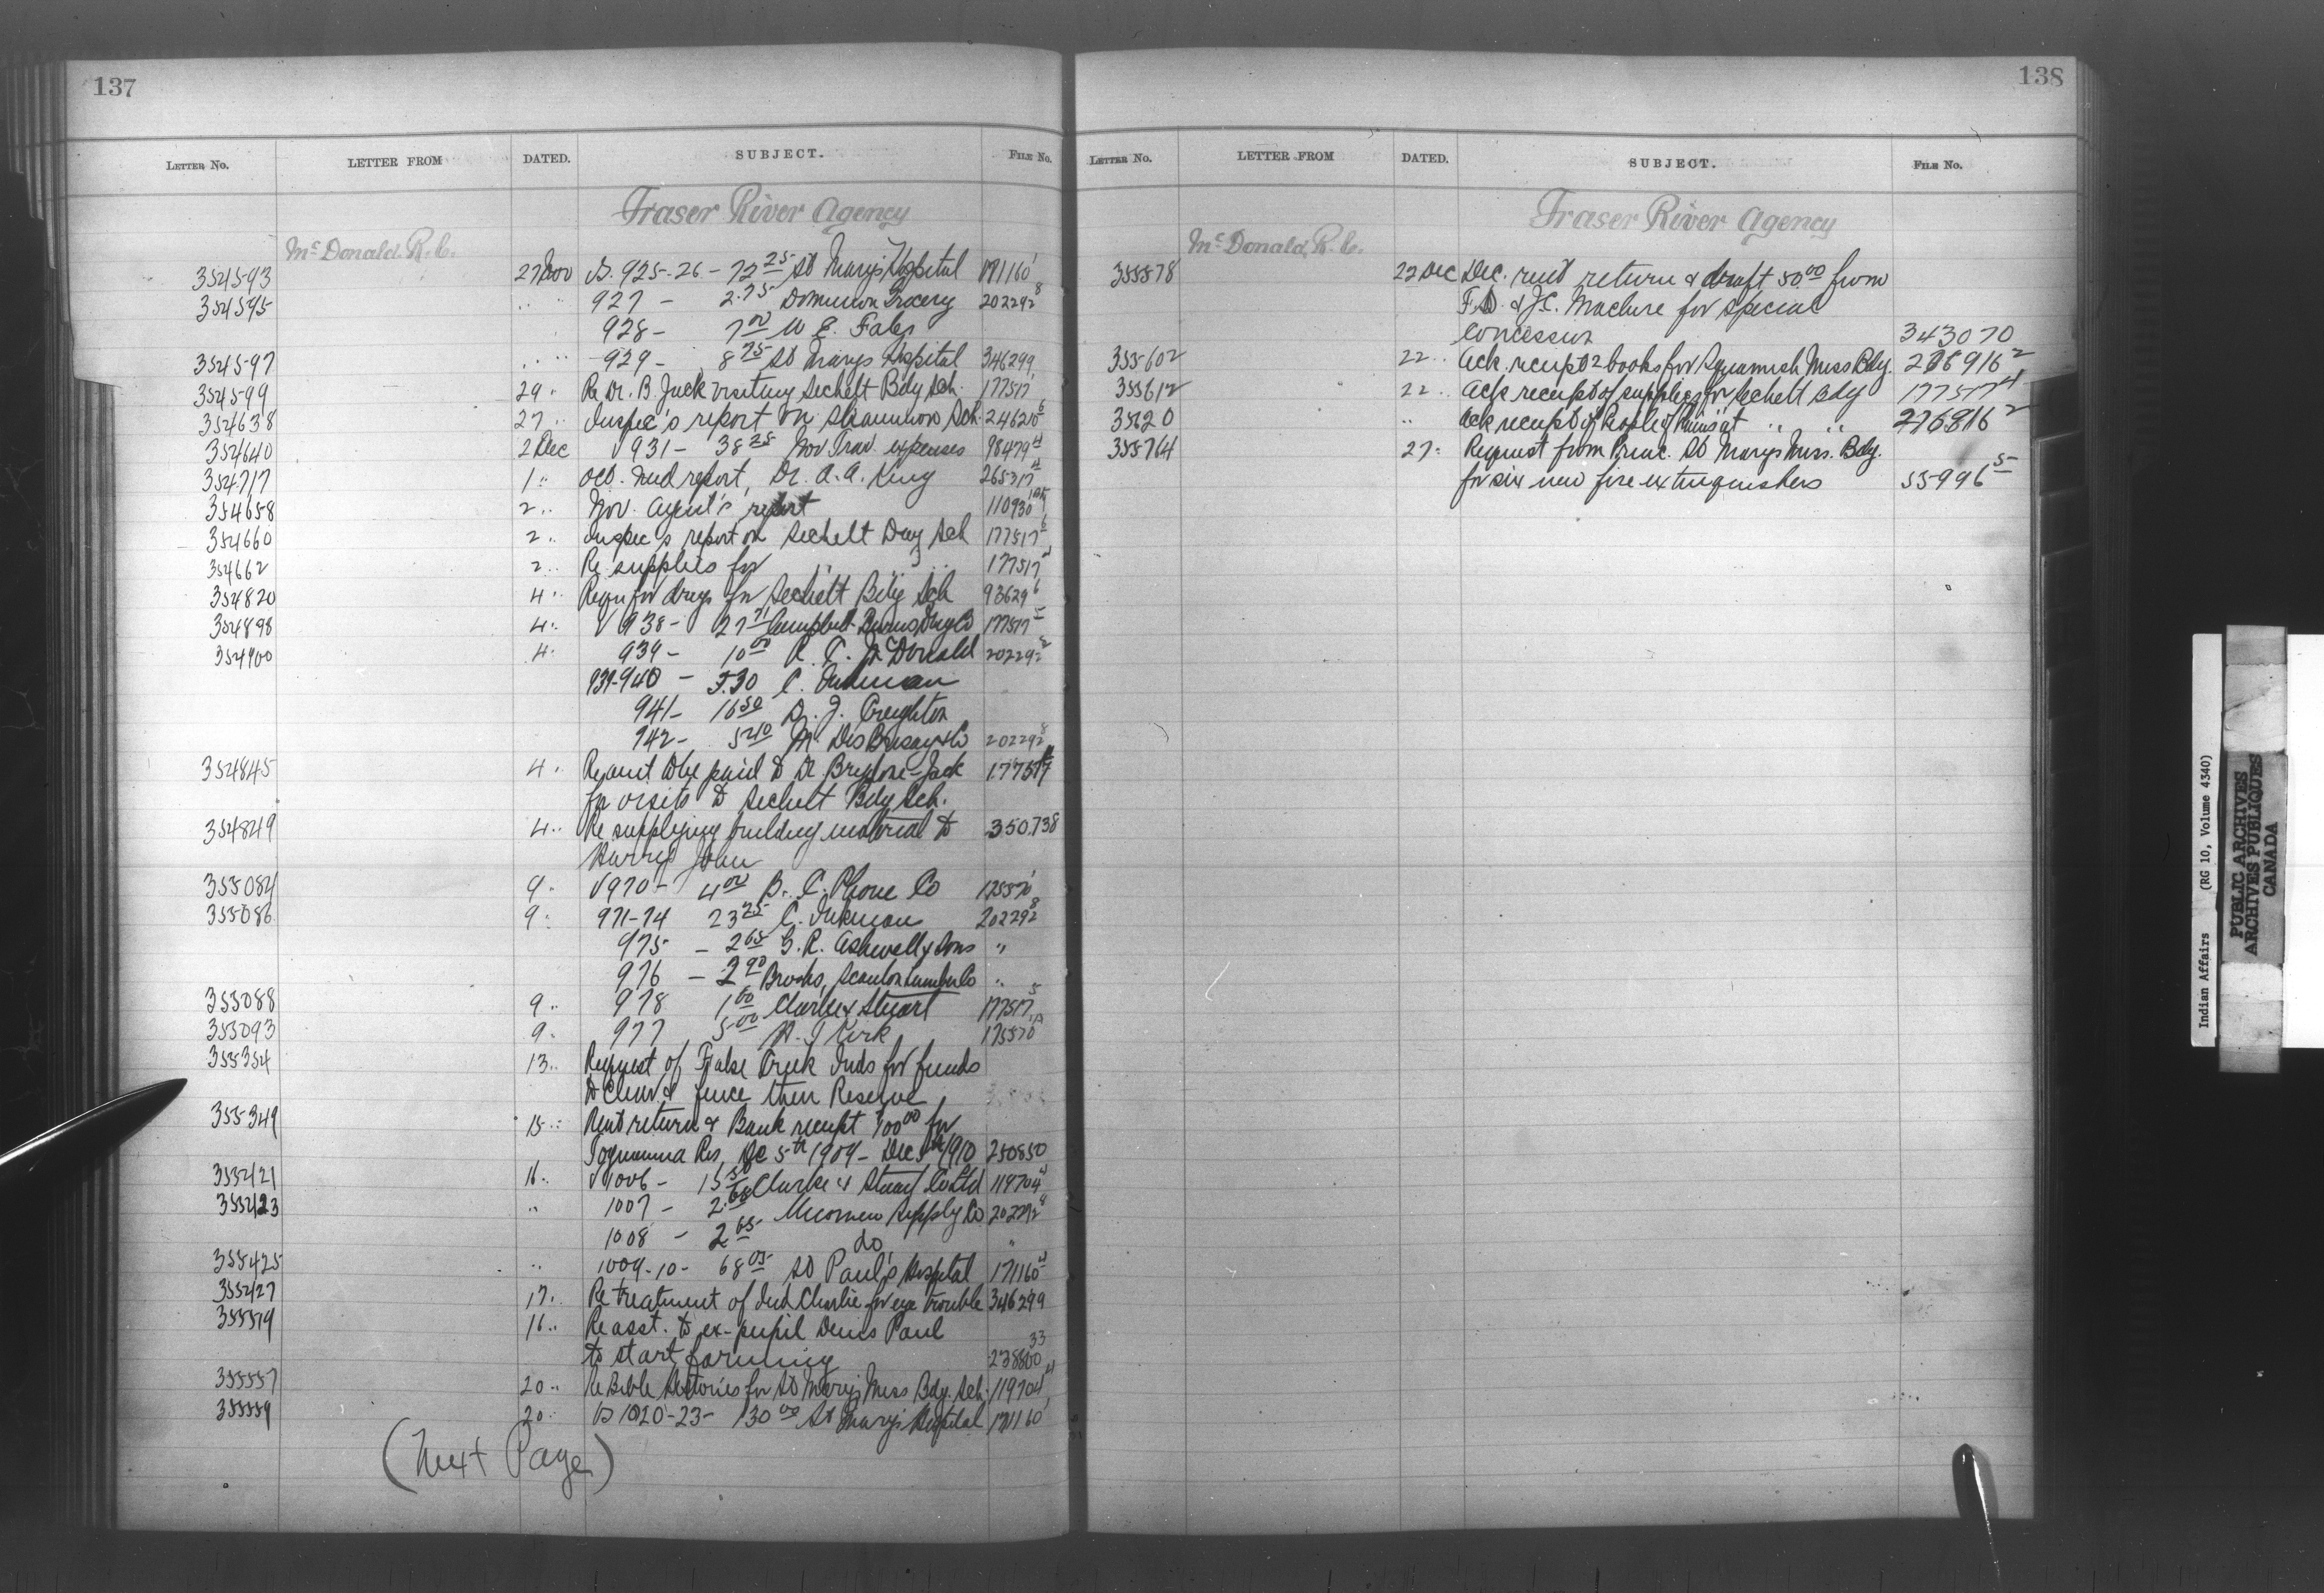 137
LETTER NO. LETTER FROM DATED. SUBJECT. FILE NO.
Fraser River Agency
McDonald R. C.
354593 27 Nov V. 925-26 - 72 25 St Mary's Hospital 171160 1
354595 " " 927 - 2.75 Dominion Grocery 202292 8
928 - 7 00 W E. Fales
354597 " " 929 - 8 75 St Marys Hospital 346299
354599 29 " Re Dr. B. Jack visiting Sechelt Bdg Sch. 177517
354638 27 " Inspec's report on Skaunlion Sch. 246210 6
354640 2 Dec V 931 - 38 25 Nov Trav. expenses 98479 4
354717 1 " Oct. med report, Dr. A. A. King 265317
354658 2 " Nov. Agent's report 110930
354660 2 " Inspec's report on Sechelt Day Sch 177517 6
354662 2 " Re supplies for " " " 177517
354820 4 " Requn for drugs for Sechelt Bdg Sch 93629 6
354898 4 " V 938 - 27 71 Campbell Drug Co 177517 5
354900 4 " 939 - 10 00 R. C. McDonald 202292
939-940 - 5.30 C. Inkman
941 - 16 50 D. J. Creighton
942 - 5 40 M. Des Brisay & Co 202292 8
354845 4 " Re amt to be paid to Dr Brydone-Jack 177517
for visits to Sechelt Bdg Sch.
354849 4 " Re supplying building material to 350.738
Harry John
355084 9 " V 970 - 4 00 B. C. Phone Co 175570 1
355086 9 " 971-74 23 25 C. Inkman 202292 8
975 - 2 65 G. R. Ashwell & Sons "
976 - 2 90 Brooks, Scanlon Lumber Co "
355088 9 " 978 1 60 Clarke & Stuart 177517 5
355093 9 " 977 5 00 Kirk 175570
355354 13 " Request of False Creek Inds for funds
to clear & fence their Reserve
355349 15 " Rent return & Bank receipt 100 00 for
Res, Dec 5th 1909 - Dec 5th 1910 250850
355421 16 " V 1006 - 15 50 Clarke & Stuart Co Ltd 119704 4
355423 " 1007 - 2.60 Nicomen Supply Co 202292 8
1008 - 2 65 do "
355425 " 1009-10 - 68 05 St Paul's Hospital 171160
355427 17 " Re treatment of Ind Charlie for eye trouble 346299
355519 16 " Re asst. to ex-pupil Denis Paul
to start farming 238800 33
355557 20 " Re Bible Histories for St Mary's Miss Bdg. Sch. 119704 4
355559 20 " V 1020-23 - 130 00 St Mary's Hospital 171160 1
(Next Page)
138
LETTER NO. LETTER FROM DATED. SUBJECT. FILE NO.
Fraser River Agency
McDonald, R. C.
355578 22 Dec Dec. rent return & draft 50 00 from
F. D. & J. C. Maclure for special
concession 343070
355602 22 " Ack. receipt 2 books for Squamish Miss Bdg. 276916 2
355612 22 " Ack receipt of supplies for Sechelt Bdg 177517 4
35620 " Ack receipt of " " 276816 2
355764 27 " Request from Princ. St Marys Miss. Bdg.
for six new fire extinguishers 55996 5
Indian Affairs (RG 10, Volume 4340)
PUBLIC ARCHIVES
ARCHIVES PUBLIQUES
CANADA